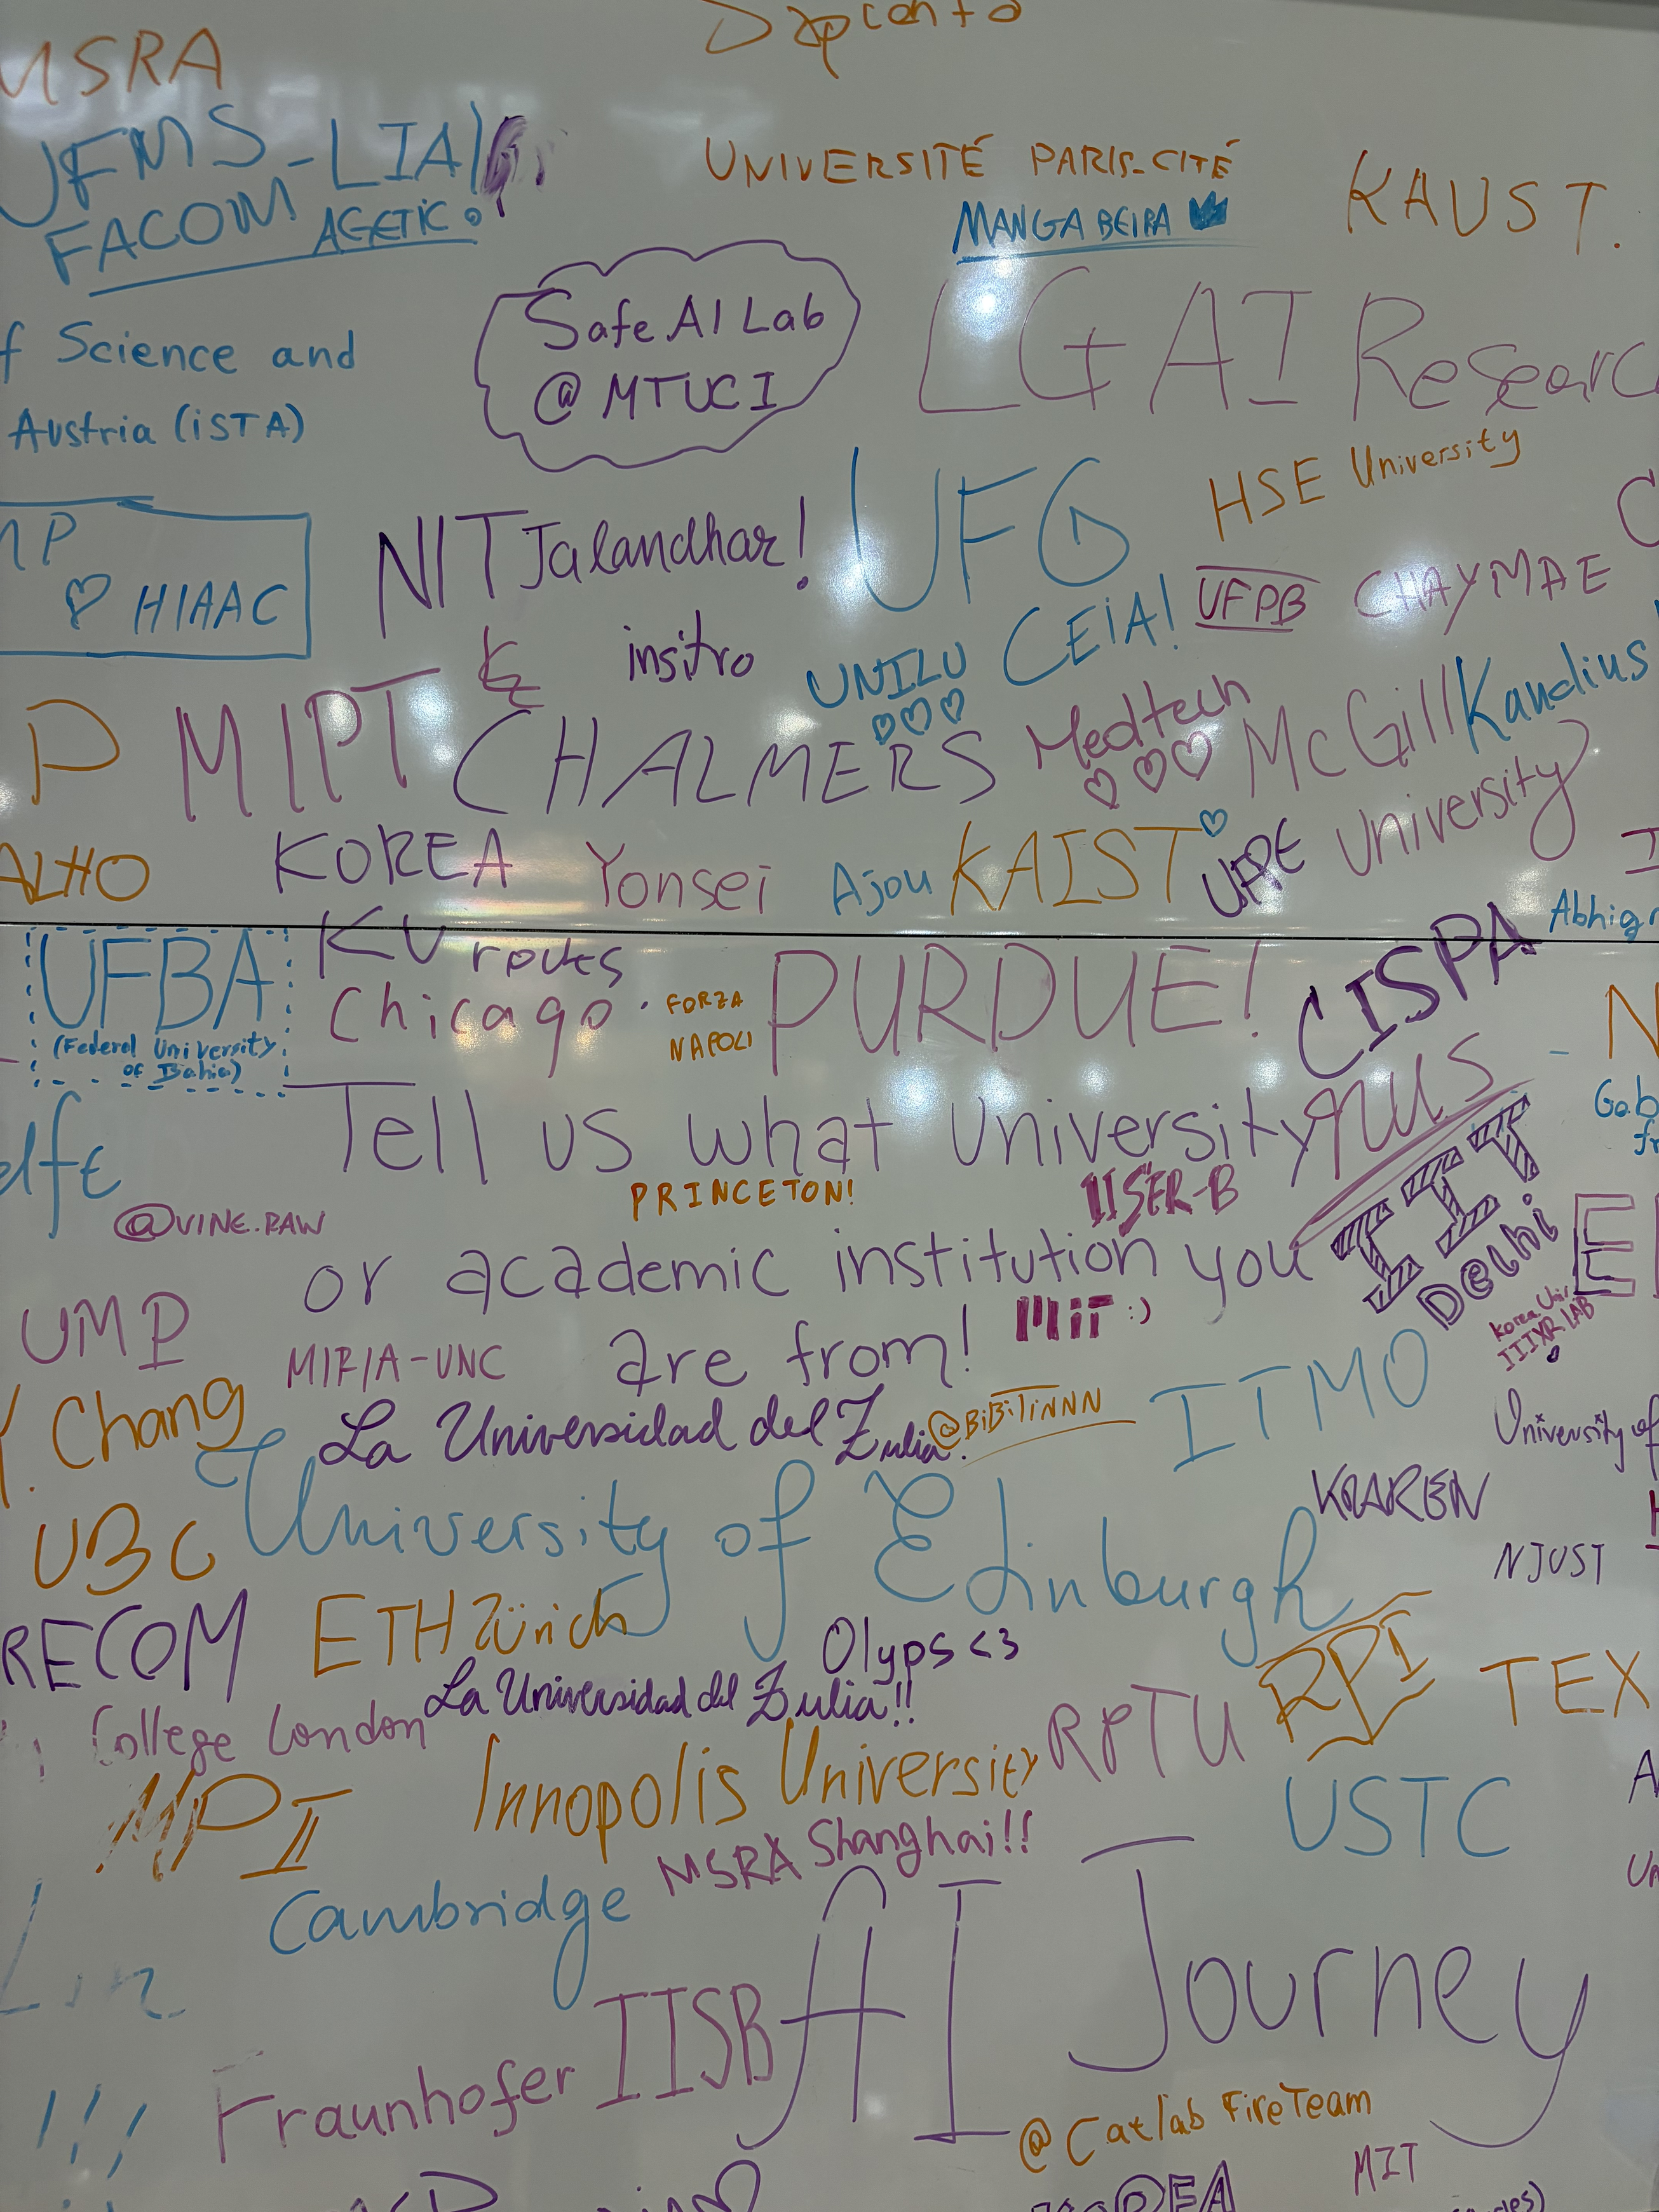 MSRA
UFMS-LIA
FACOM AGETIC
UNIVERSITÉ PARIS-CITÉ
MANGABEIRA
KAUST.
Safe AI Lab
@ MTUCI
LG AI Researc
f Science and
Austria (iSTA)
HSE University
HIAAC
NIT Jalandhar!
UFG
CEiA!
UFPB
CHAYMAE
insitro
UNILU
P
MIPT
CHALMERS
Medtech
McGill
University
Kandius
ALHO
KOREA
Yonsei
Ajou
KAIST
UFPE
Abhig
UFBA
(Federal University
of Bahia)
KU
Chicago
FORZA
NAPOLI
PURDUE!
CISPA
Tell us what University
nus
PRINCETON!
IISER-B
@VINE.RAW
or academic institution you
IIT
Delhi
Gab
fr
UMP
MIF/A-UNC
are from!
MiT :)
Korea Univ
IIIXR LAB
Y. Chang
La Universidad del Zulia.
@BiBiTiNNN
ITMO
University of
UBC
University of Edinburgh
KAREN
NJUST
RECOM
ETH Zürich
Olyps <3
RPI
TEX
College London
La Universidad del Zulia!!
RPTU
MPI
Innopolis University
USTC
Cambridge
MSRA Shanghai!!
AI Journey
Fraunhofer IISB
!!!
@ Catlab FireTeam
MIT